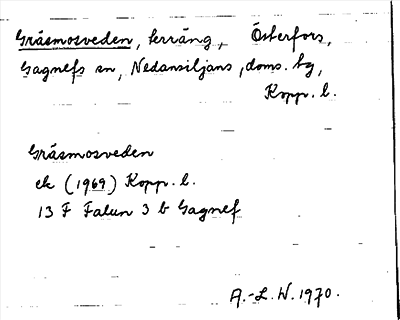 Gräsmosveden, terräng, Österfors,
Gagnefs sn, Nedansiljans, doms. hg,
Kopp. l.
Gräsmosveden
ek (1969) Kopp. l.
13 F Falun 3 b Gagnef
A.-L. W. 1970.